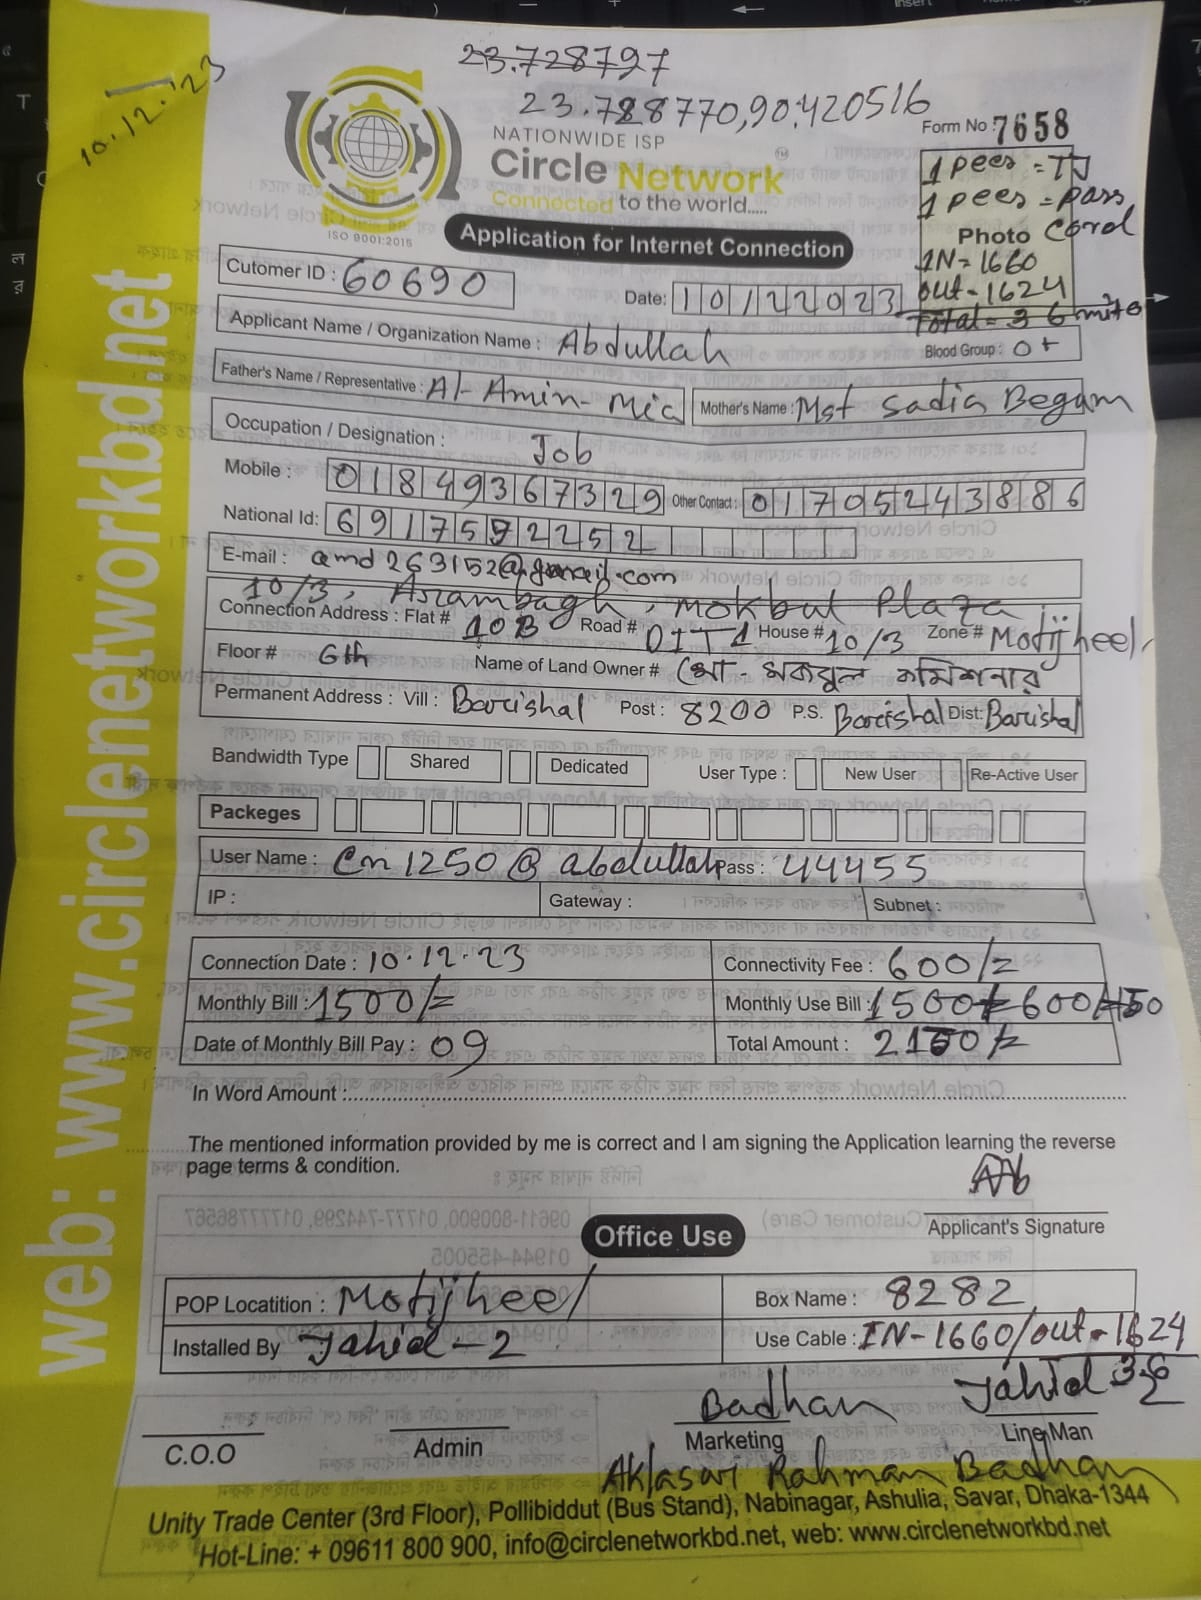 10.12.'23
23.728797
23.728770,90.420516
NATIONWIDE ISP
Circle Network
Connected to the world.....
ISO 9001:2015
Form No : 7658
1 pees = TJ
1 pees = pass
Photo Cord
IN = 1660
out - 1624
Total = 36 mite
Application for Internet Connection
Cutomer ID : 60690
Date: 10/122023
Applicant Name / Organization Name : Abdullah
Blood Group : O+
Father's Name / Representative : Al-Amin-Mia
Mother's Name : Mst Sadia Begum
Occupation / Designation : Job
Mobile : 01849367329 Other Contact : 01705243886
National Id: 6917592252
E-mail : amd263152@gmail.com
10/3, Arambagh, Mokbul Plaza
Connection Address : Flat # 10B Road # DIT 1 House # 10/3 Zone # Motijheel
Floor # 6th Name of Land Owner # মো মকবুল কমিশনার
Permanent Address : Vill : Barishal Post : 8200 P.S. Barishal Dist: Barishal
Bandwidth Type Shared Dedicated User Type : New User Re-Active User
Packeges
User Name : Cn1250@abdullah Pass : 44455
IP : Gateway : Subnet :
Connection Date : 10.12.23 Connectivity Fee : 600/=
Monthly Bill : 1500/= Monthly Use Bill : 1500+600+50
Date of Monthly Bill Pay : 09 Total Amount : 2150/=
In Word Amount :
The mentioned information provided by me is correct and I am signing the Application learning the reverse
page terms & condition.
Applicant's Signature
Office Use
POP Locatition : Motijheel Box Name : 8282
Installed By Jahid-2 Use Cable : IN-1660/out-1624
Badhan Jahid 36
C.O.O Admin Marketing Line Man
Rahman Badhan
Unity Trade Center (3rd Floor), Pollibiddut (Bus Stand), Nabinagar, Ashulia, Savar, Dhaka-1344
Hot-Line: + 09611 800 900, info@circlenetworkbd.net, web: www.circlenetworkbd.net
web: www.circlenetworkbd.net